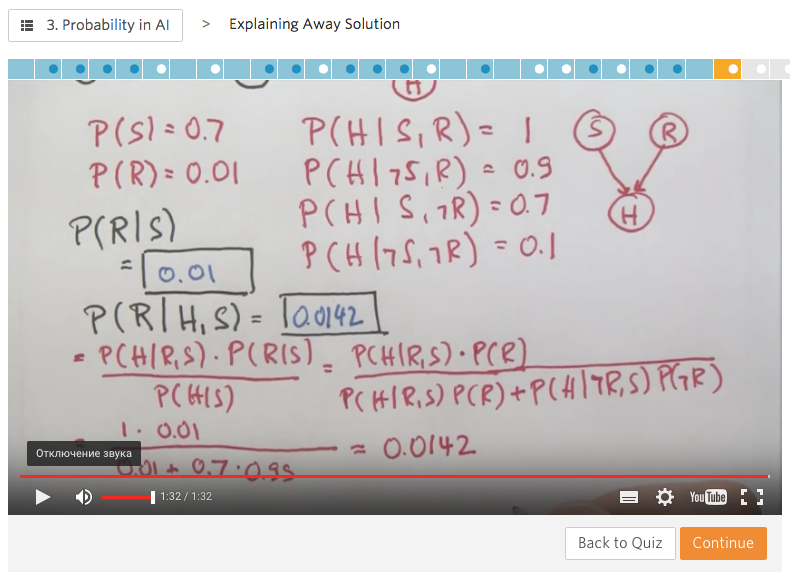 3. Probability in AI > Explaining Away Solution
H
P(S) = 0.7
P(R) = 0.01
P(H | S, R) = 1
P(H | ¬S, R) = 0.9
P(H | S, ¬R) = 0.7
P(H | ¬S, ¬R) = 0.1
S R
H
P(R|S)
= 0.01
P(R | H, S) = 0.0142
= P(H|R,S) · P(R|S) / P(H|S) = P(H|R,S) · P(R) / P(H|R,S) P(R) + P(H|¬R,S) P(¬R)
= 1 · 0.01 / 0.01 + 0.7 · 0.99 = 0.0142
Отключение звука
1:32 / 1:32
YouTube
Back to Quiz
Continue